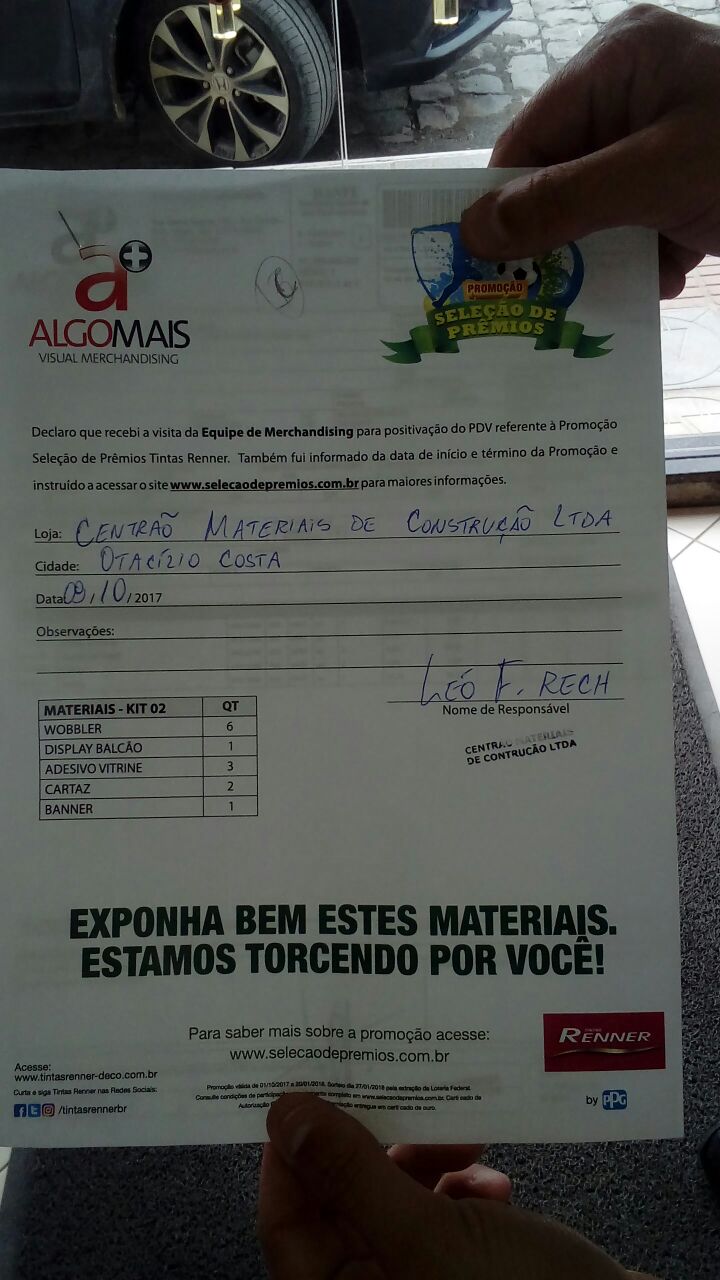 a+
ALGOMAIS
VISUAL MERCHANDISING
6
PROMOÇÃO
SELEÇÃO DE
PRÊMIOS
Declaro que recebi a visita da Equipe de Merchandising para positivação do PDV referente à Promoção
Seleção de Prêmios Tintas Renner. Também fui informado da data de início e término da Promoção e
instruído a acessar o site www.selecaodepremios.com.br para maiores informações.
Loja: CENTRAÕ MATERIAIS DE CONSTRUÇÃO LTDA
Cidade: OTACÍZIO COSTA
Data 09/10/2017
Observações:
LEÓ F. RECH
Nome de Responsável
CENTRAO MATERIAIS
DE CONTRUÇÃO LTDA
MATERIAIS - KIT 02 QT
WOBBLER 6
DISPLAY BALCÃO 1
ADESIVO VITRINE 3
CARTAZ 2
BANNER 1
EXPONHA BEM ESTES MATERIAIS.
ESTAMOS TORCENDO POR VOCÊ!
Para saber mais sobre a promoção acesse:
www.selecaodepremios.com.br
TINTAS
RENNER
by PPG
Acesse:
www.tintasrenner-deco.com.br
Curta e siga Tintas Renner nas Redes Sociais:
/tintasrennerbr
Promoção válida de 01/10/2017 a 20/01/2018. Sorteio dia 27/01/2018 pela extração da Loteria Federal.
Consulte condições de participação completo em www.selecaodepremios.com.br. Certificado de
Autorização entregue em certificado de ouro.